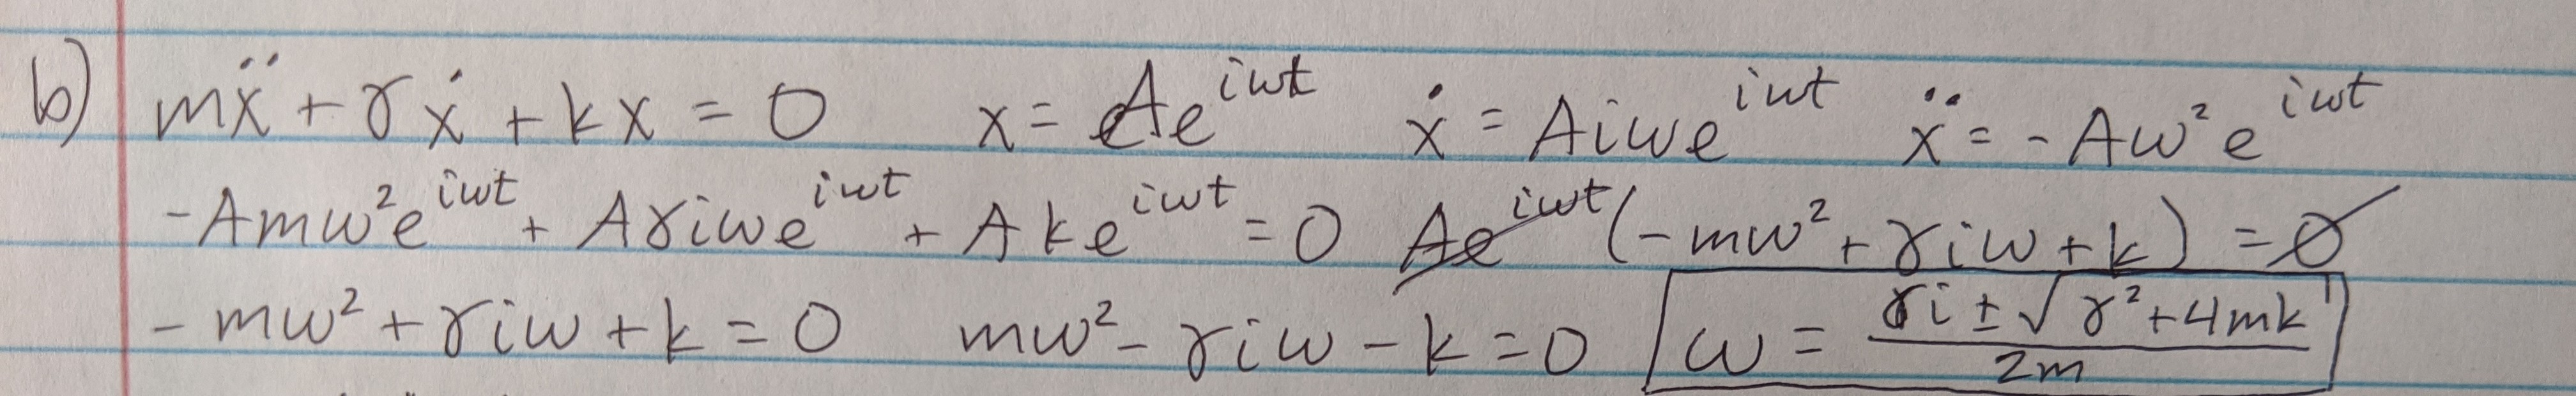 b) mẍ + γẋ + kx = 0 x = Ae^{iωt} ẋ = Aiωe^{iωt} ẍ = -Aω²e^{iωt}
-Amω²e^{iωt} + Aγiωe^{iωt} + Ake^{iωt} = 0 Ae^{iωt}(-mω² + γiω + k) = 0
-mω² + γiω + k = 0 mω² - γiω - k = 0 ω = (γi ± √(γ² + 4mk)) / 2m